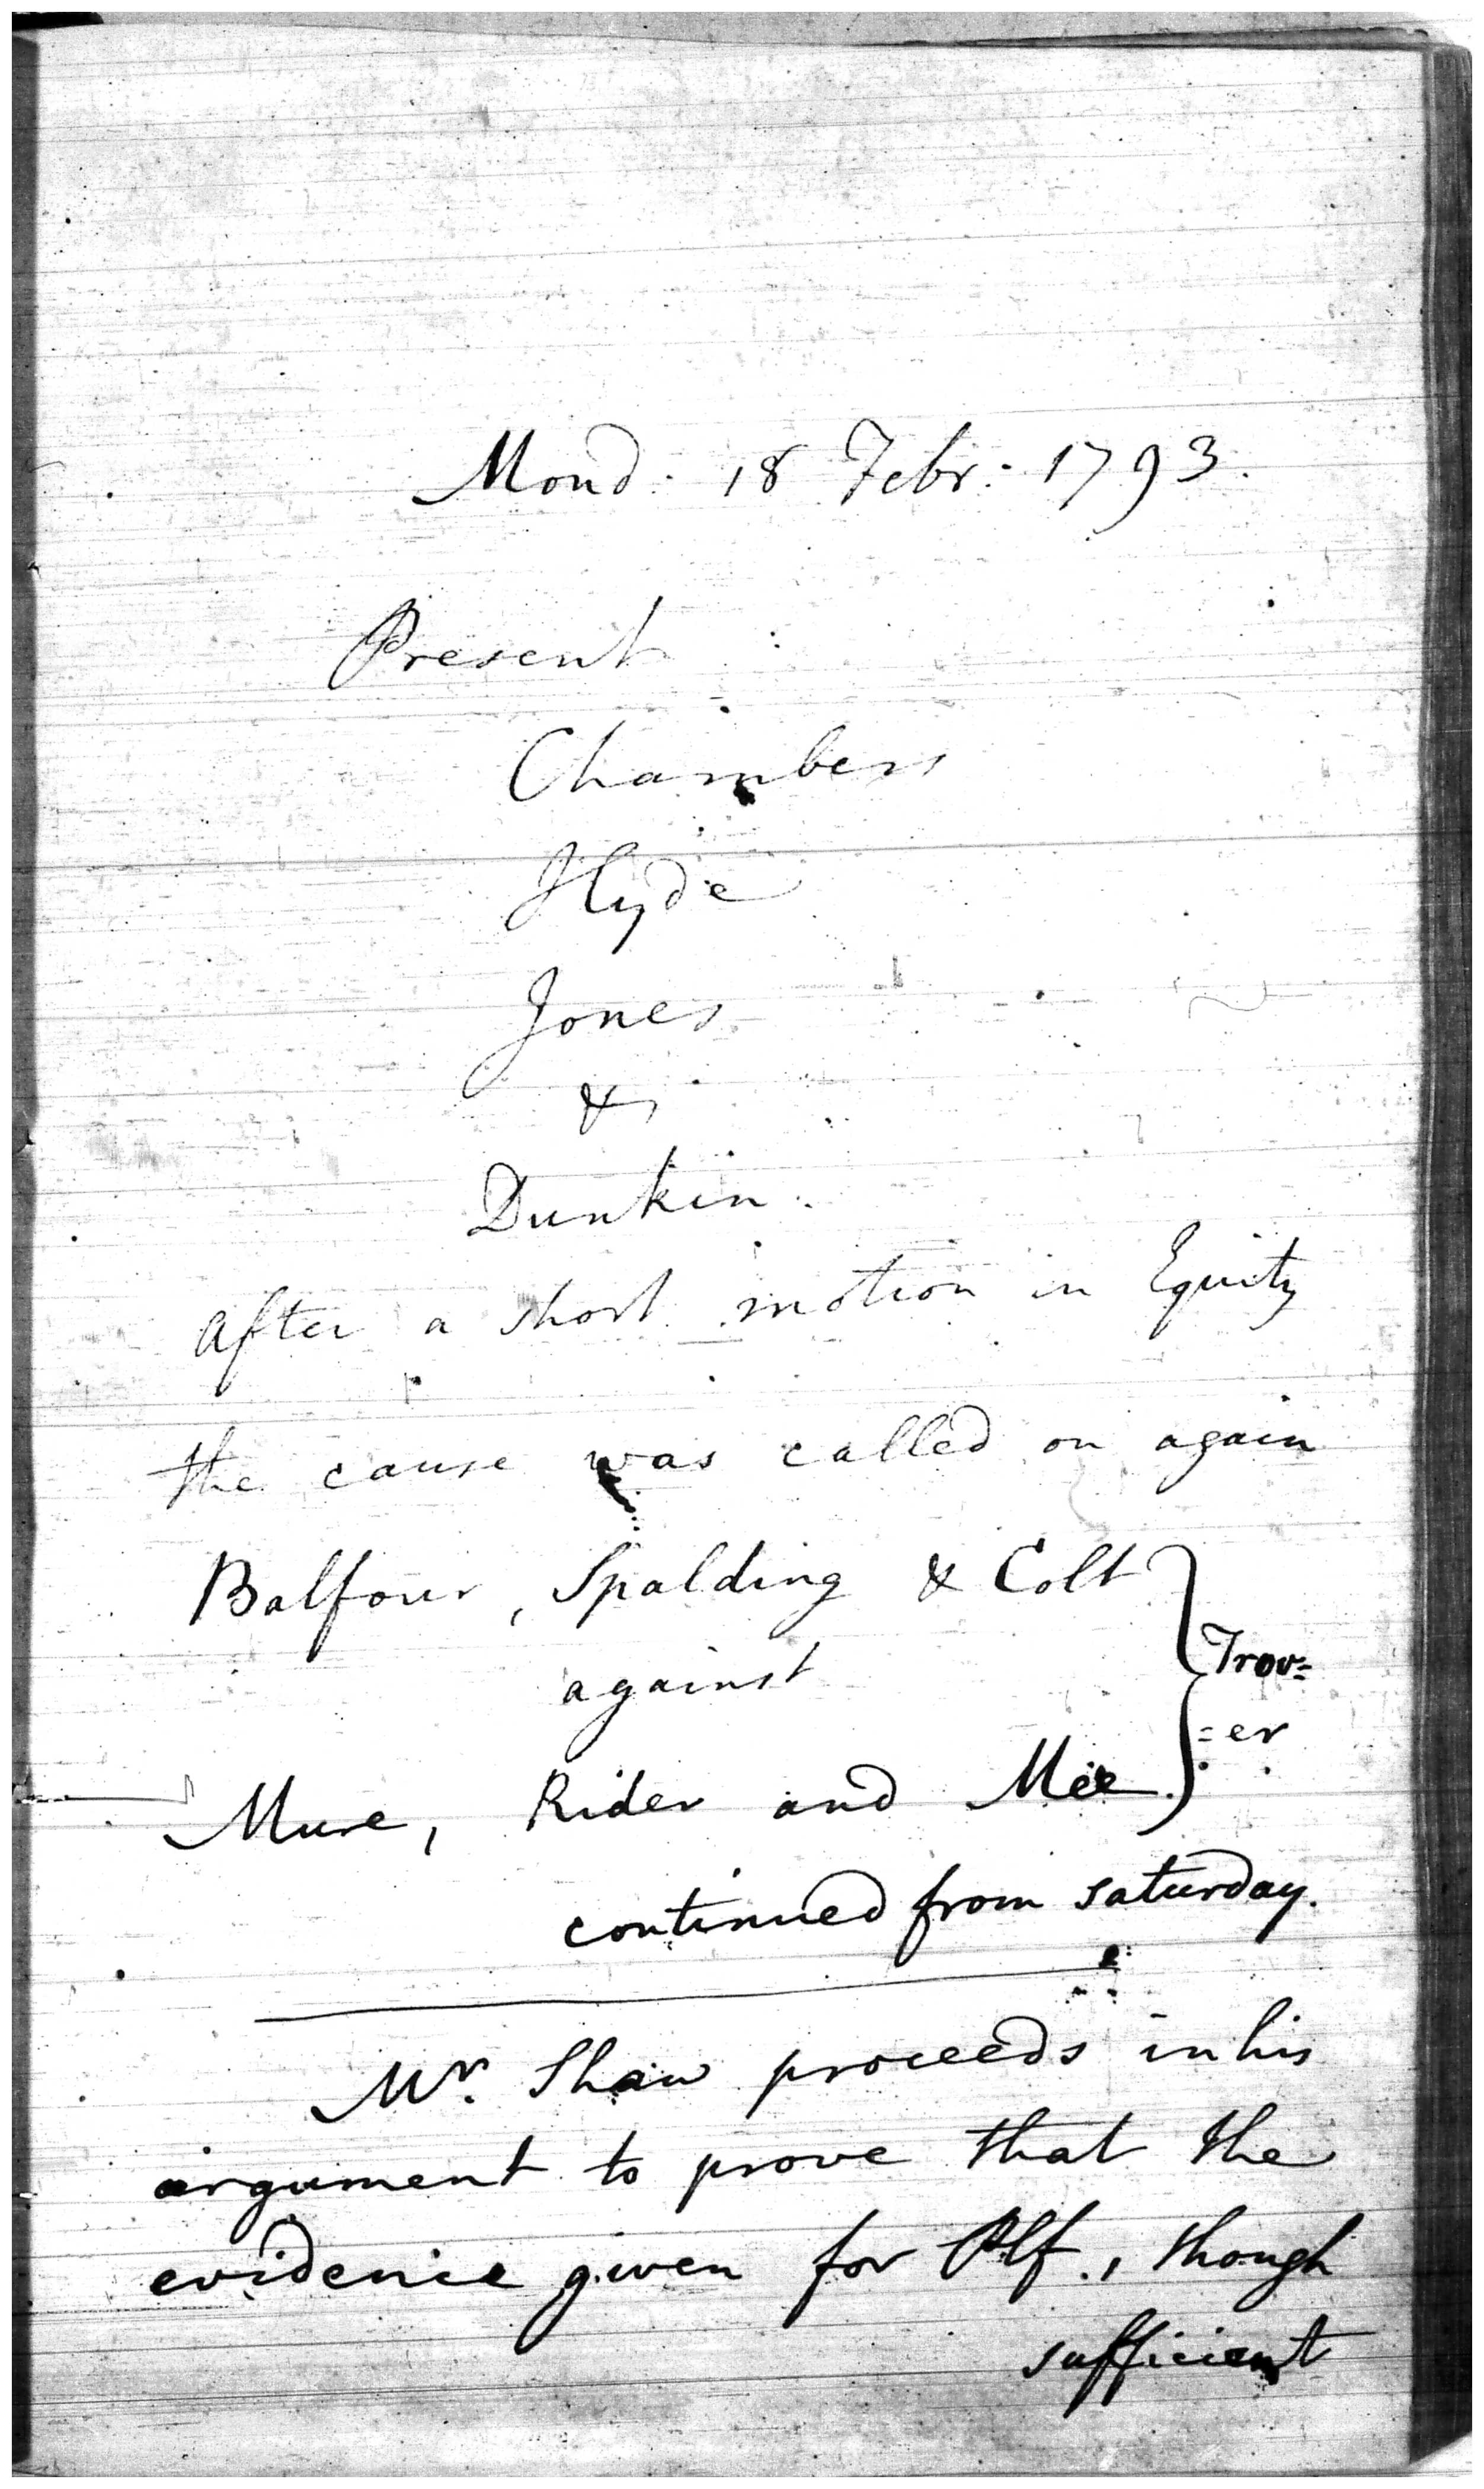 Mond: 18 Febr: 1793.
Present
Chambers
Hyde
Jones
&
Dunkin.
After a short motion in Equity
the cause was called on again
Balfour, Spalding & Colt
against
Trov=
=er
Mure, Rider and Mee.
continued from saturday.
Mr. Shaw proceeds in his
argument to prove that the
evidence given for Plf., though
sufficient